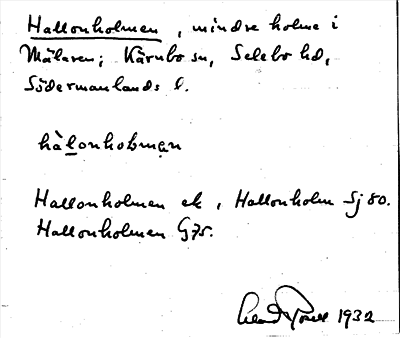 Hallonholmen, mindre holme i
Mälaren; Kärnbo sn, Selebo hd,
Södermanlands l.
hàlonholmen
Hallonholmen ek, Hallonholm Sj 80.
Hallonholmen G 75.
1932